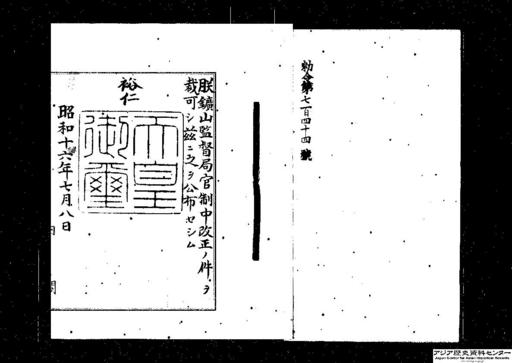 勅令第七百四十四號
朕鑛山監督局官制中改正ノ件ヲ
裁可シ茲ニ之ヲ公布セシム
裕仁
天皇
御璽
昭和十六年七月八日
内閣
アジア歴史資料センター
Japan Center for Asian Historical Records